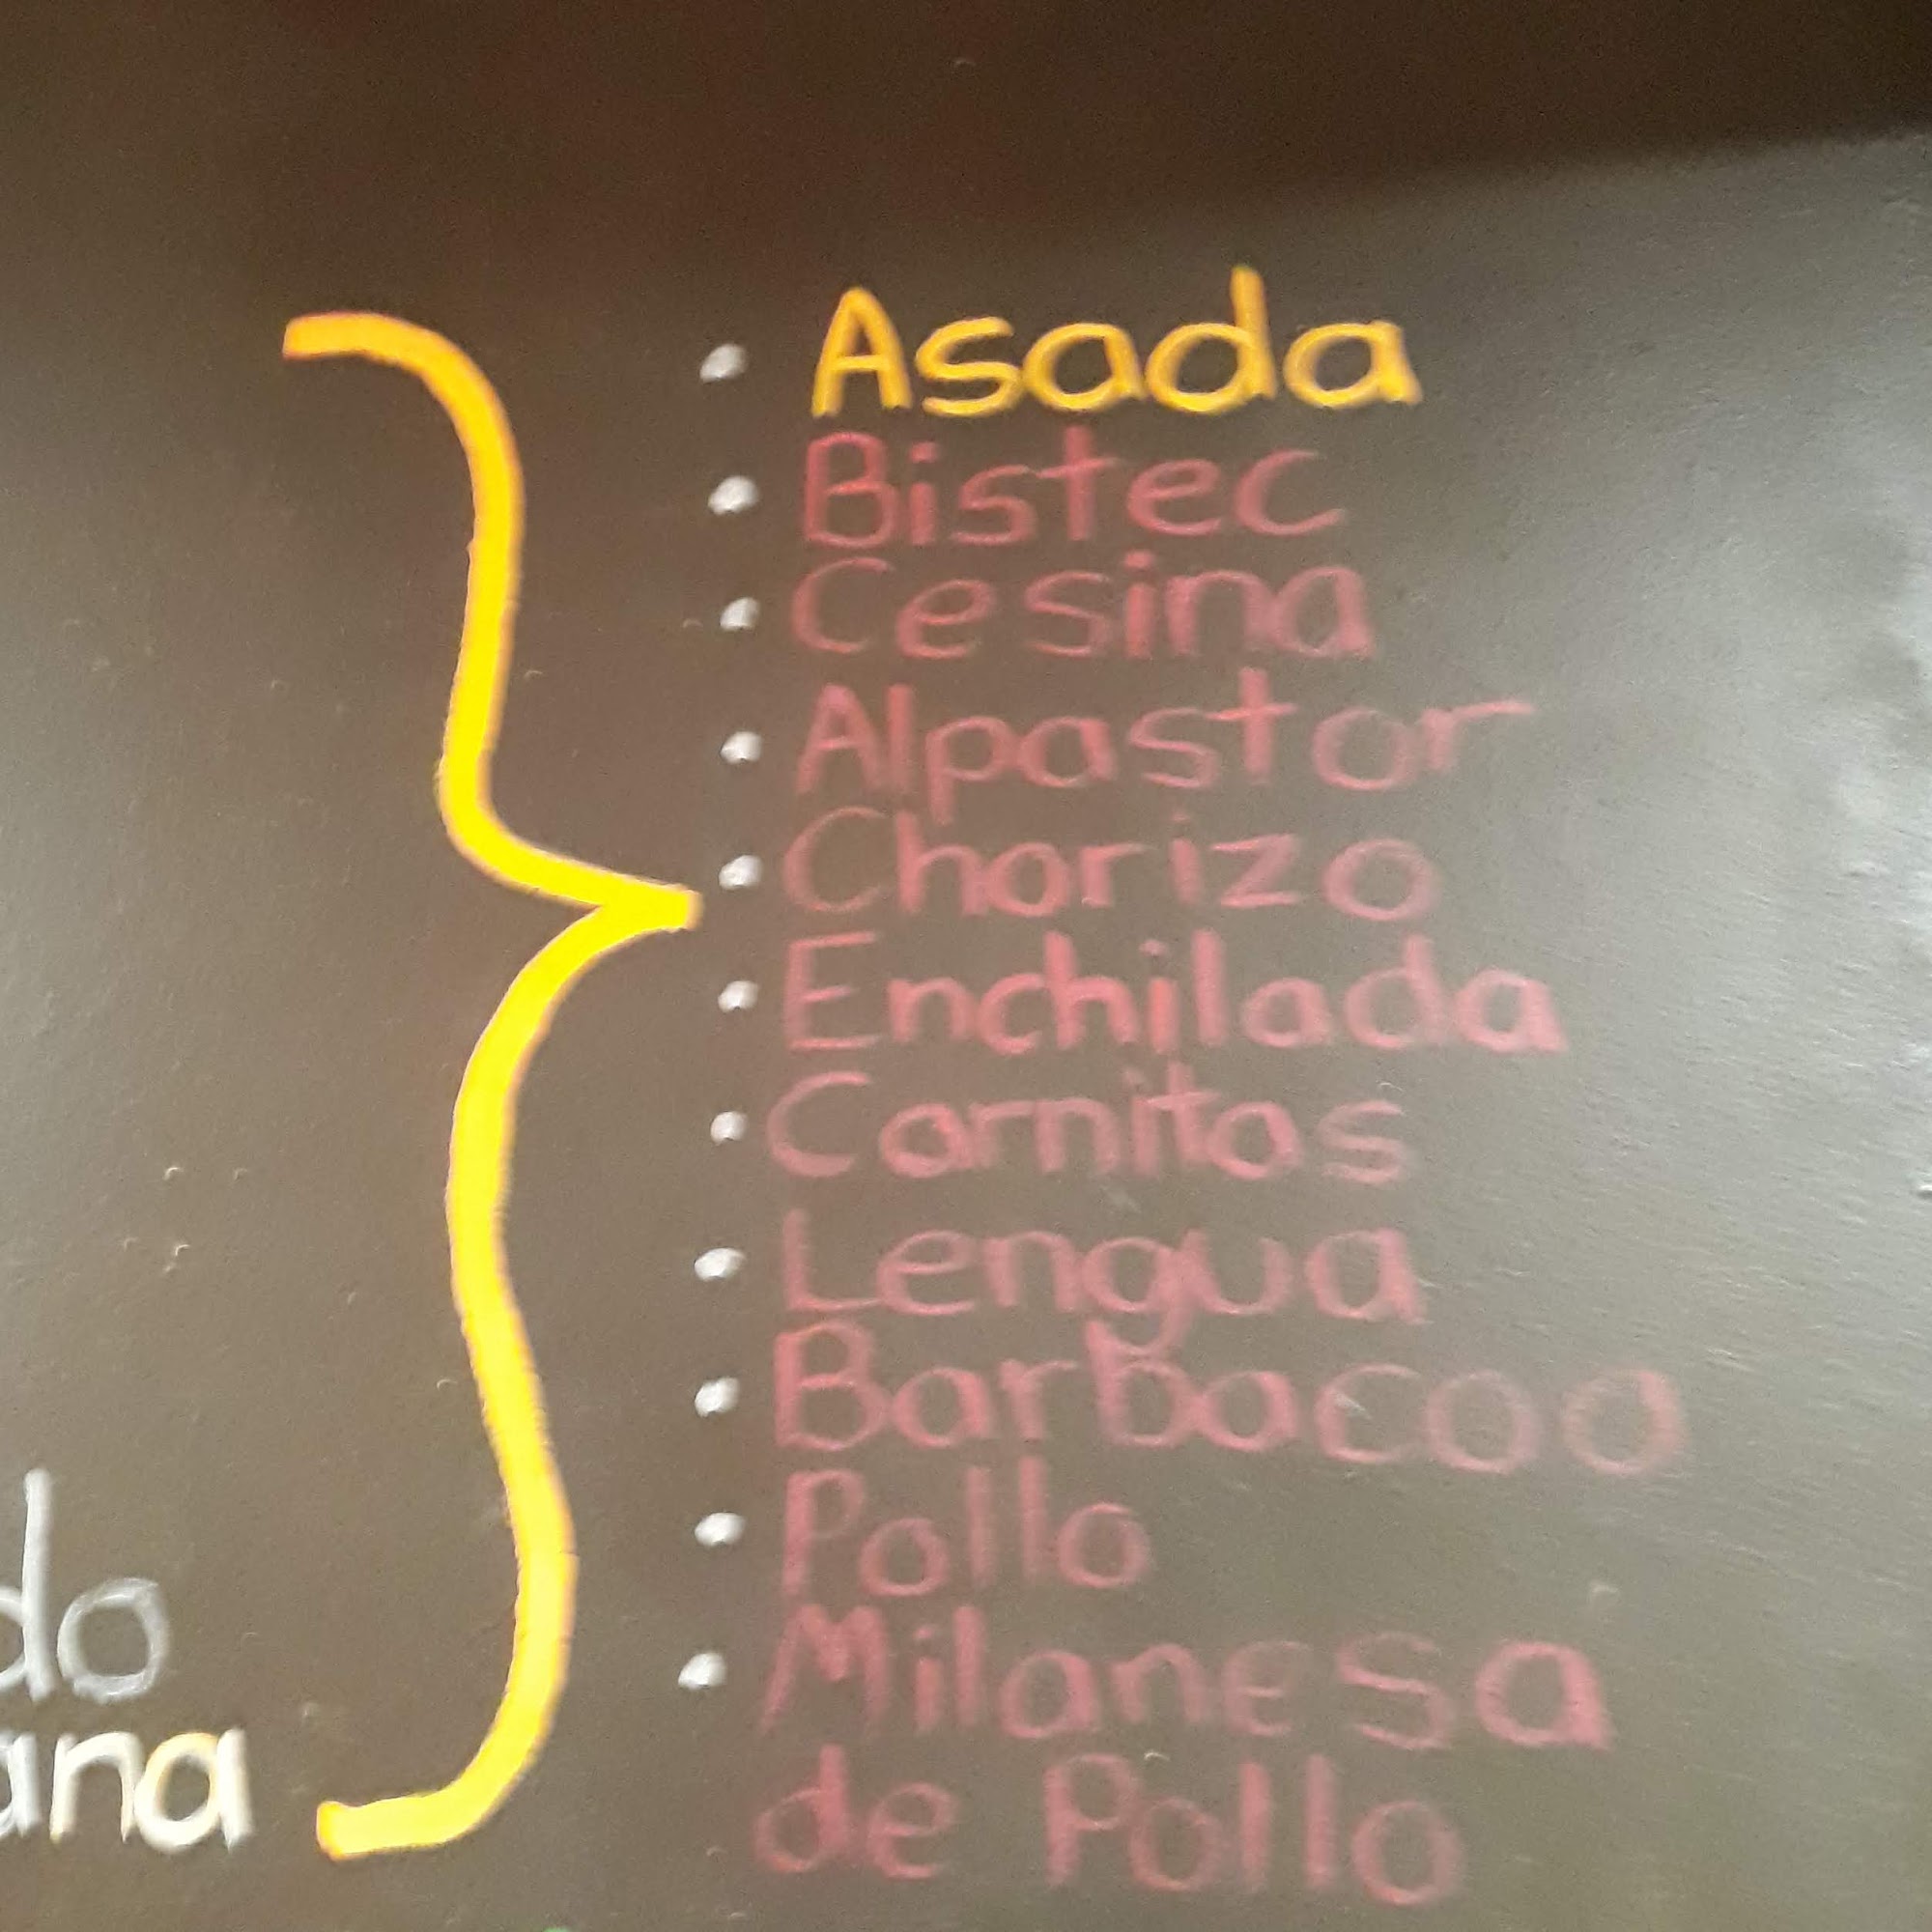 Asada
Bistec
Cesina
Alpastor
Chorizo
Enchilada
Carnitas
Lengua
Barbacoa
Pollo
Milanesa
de Pollo
do
ana